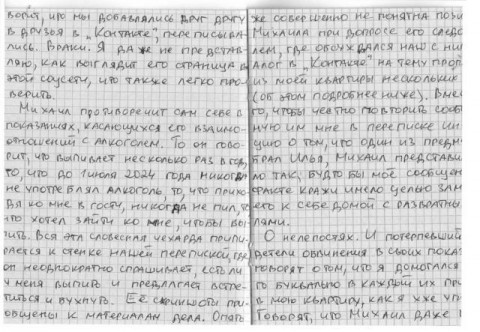 ворят, что мы добавлялись друг другу
в друзья в „Контакте", переписыва-
лись. Враки. Я даже не представ-
ляю, как выглядит его страница в
этой соцсети, что также легко про-
верить.
Михаил противоречит сам себе в
показаниях, касающихся его взаимо-
отношений с алкоголем. То он гово-
рит, что выпивает несколько раз в год,
то, что до 1 июля 2024 года никогда
не употреблял алкоголь, то, что прихо-
дя ко мне в гости, никогда не пил, то
что хотел зайти ко мне, чтобы вы-
пить. Вся эта словесная чехарда припи-
рается к стенке нашей перепиской, где
он неоднократно спрашивает, есть ли
у меня выпить и предлагает встре-
титься и бухнуть. Её скриншоты при-
общены к материалам дела. Опять
же совершенно не понятна пози
Михаила при допросе его следо
лем, где обсуждался наш с ни
алог в „Контакте" на тему проп
из моей квартиры нескольких
(об этом подробнее ниже). Вме
го, чтобы честно повторить сооб
ную им мне в переписке ин
цию о том, что один из предм
брал Илья, Михаил представи
ло так, будто бы моё сообщен
факте кражи имело целью зам
его к себе домой с развратны
лями.
О нелепостях. И потерпевший
детели обвинения в своих показ
говорят о том, что я домогался
го буквально в каждый их пр
в мою квартиру, как я уже уп
Говорят, что Михаил даже